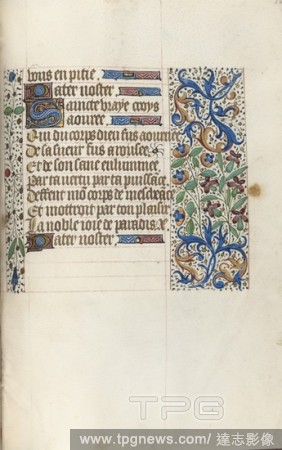 vous en pitie
Pater noster
Saincte vraye croys
aouree
Qui du corps dieu fus aournee
De sa sueur fus arousee
Et de son sanc enluminee
Par ta vertu par ta puissāce
Deffent mō corps de mescheāce
Et mottroit par ton plaisir
La noble ioie de paradis
Pater noster
TPG
www.tpgnews.com/ 達志影像